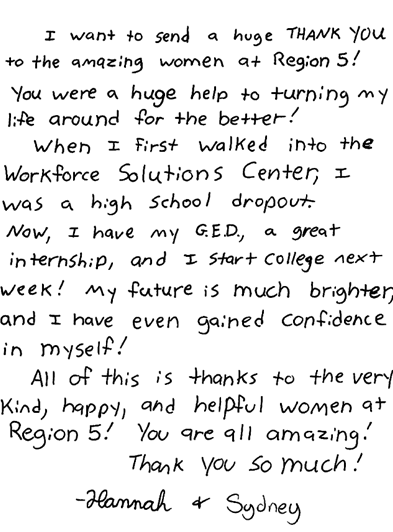 I want to send a huge THANK YOU
to the amazing women at Region 5!
You were a huge help to turning my
life around for the better!
When I first walked into the
Workforce Solutions Center, I
was a high school dropout.
Now, I have my G.E.D., a great
internship, and I start college next
week! My future is much brighter,
and I have even gained confidence
in myself!
All of this is thanks to the very
kind, happy, and helpful women at
Region 5! You are all amazing!
Thank you so much!
-Hannah & Sydney